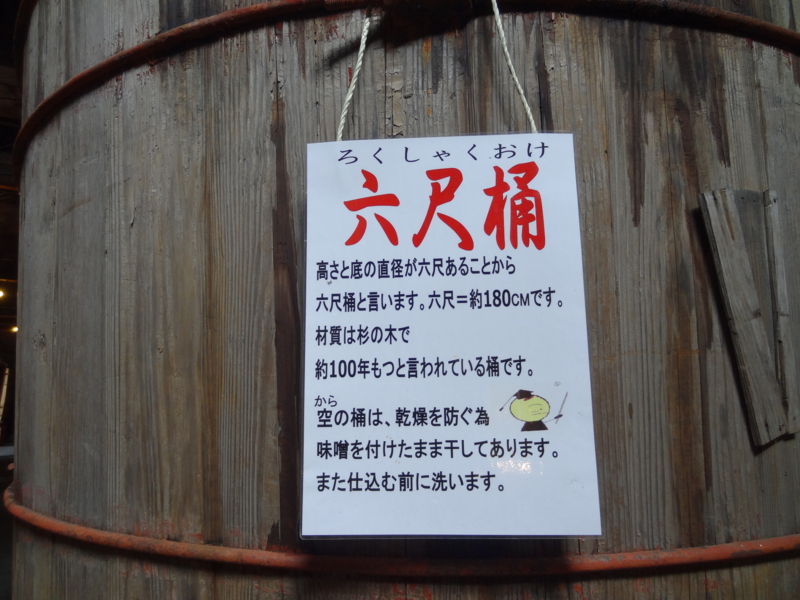 ろくしゃくおけ
六尺桶
高さと底の直径が六尺あることから
六尺桶と言います。六尺＝約180CMです。
材質は杉の木で
約100年もつと言われている桶です。
から
空の桶は、乾燥を防ぐ為
味噌を付けたまま干してあります。
また仕込む前に洗います。